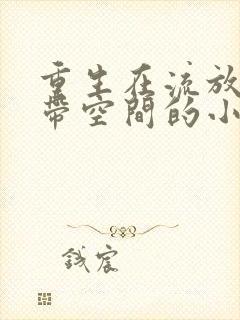 重生在流放
帶空間的小
錢宸